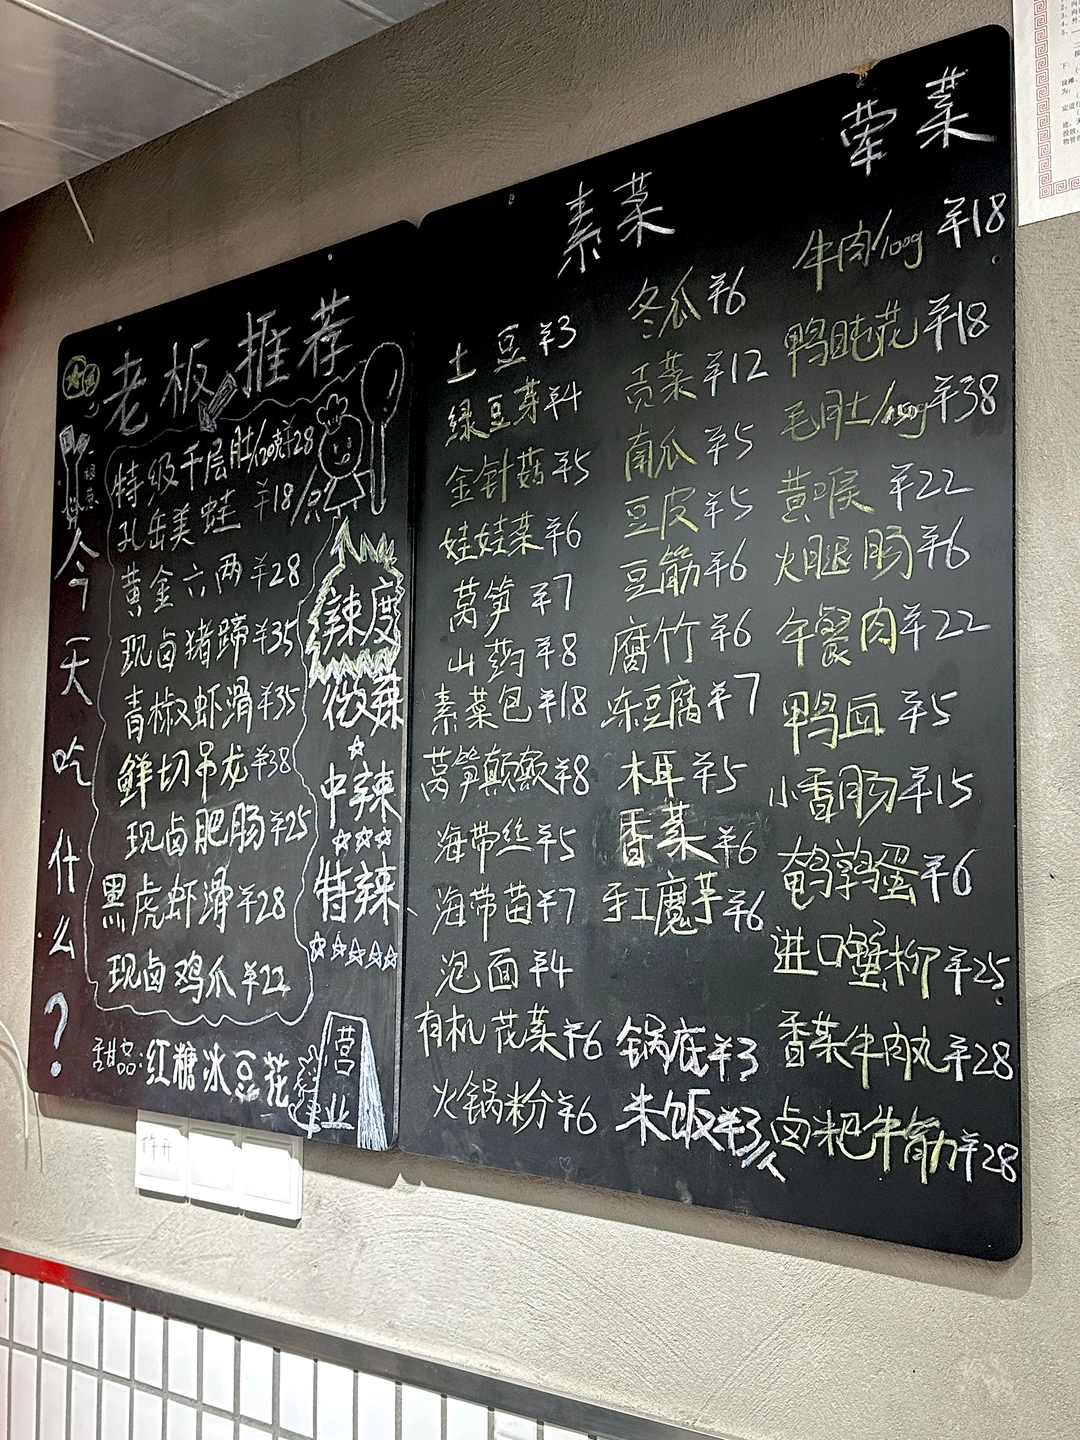 老板推荐
特级千层肚/120克¥28
孔缶美蛙 ¥18/只
黄金六两¥28
现卤猪蹄¥35
青椒虾滑¥35
鲜切吊龙¥38
现卤肥肠¥25
黑虎虾滑¥28
现卤鸡爪¥22
甜品:红糖冰豆花
今天吃什么?
辣度
微辣
☆
中辣
☆☆☆
特辣
☆☆☆☆☆
营业
素菜
土豆¥3
绿豆芽¥4
金针菇¥5
娃娃菜¥6
莴笋¥7
山药¥8
素菜包¥18
莴笋颠颠¥8
海带丝¥5
海带苗¥7
泡面¥4
有机花菜¥6
火锅粉¥6
冬瓜¥6
贡菜¥12
南瓜¥5
豆皮¥5
豆筋¥6
腐竹¥6
冻豆腐¥7
木耳¥5
香菜¥6
手工魔芋¥6
锅底¥3
米饭¥3/人
荤菜
牛肉/100g ¥18
鸭肫花¥18
毛肚/150g¥38
黄喉¥22
火腿肠¥6
午餐肉¥22
鸭血¥5
小香肠¥15
鹌鹑蛋¥6
进口蟹柳¥25
香菜牛肉丸¥28
卤粑牛筋¥28